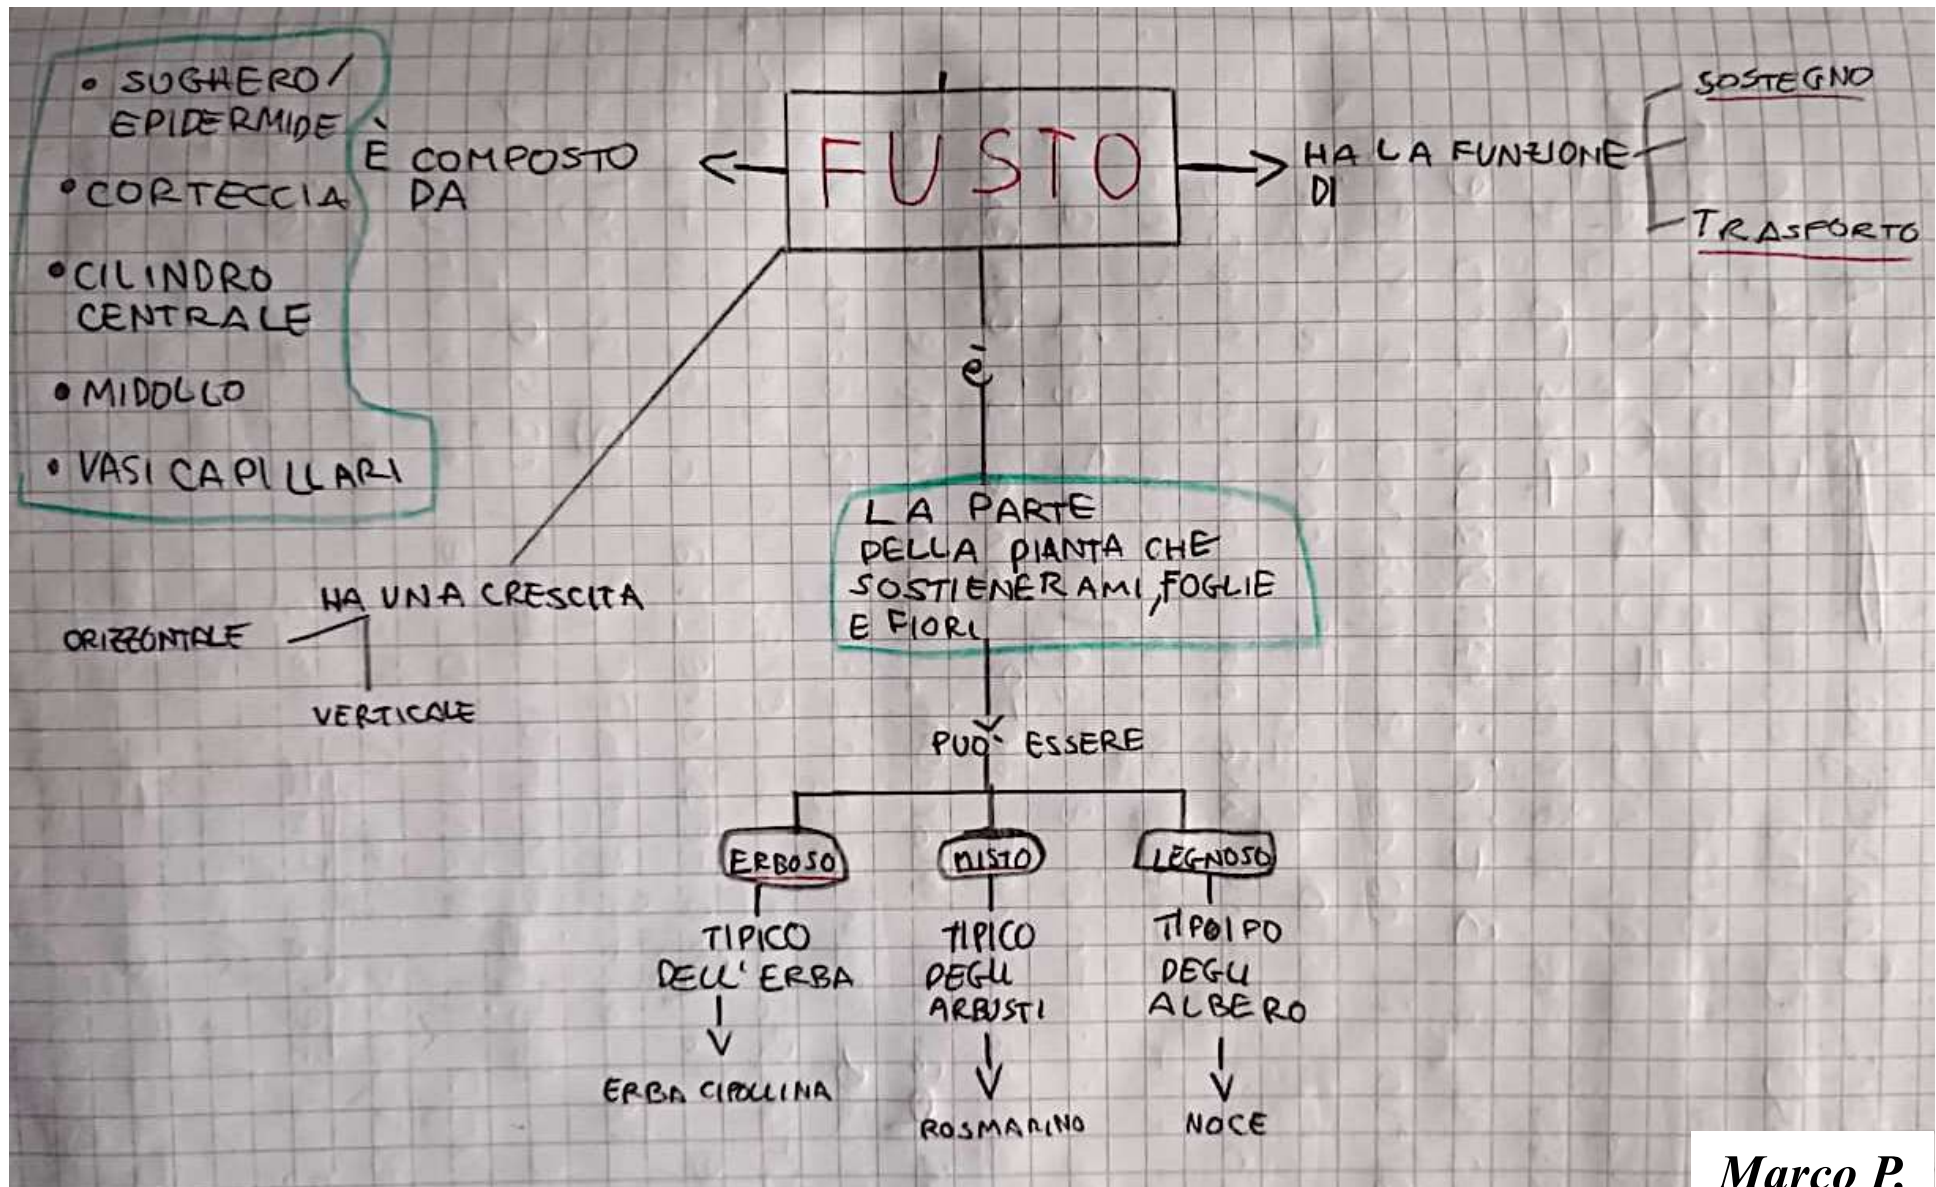 • SUGHERO/
EPIDERMIDE
• CORTECCIA
• CILINDRO
CENTRALE
• MIDOLLO
• VASI CAPILLARI
È COMPOSTO
DA
FUSTO
HA LA FUNZIONE
DI
SOSTEGNO
TRASPORTO
è
LA PARTE
DELLA PIANTA CHE
SOSTIENE RAMI, FOGLIE
E FIORI
HA UNA CRESCITA
ORIZZONTALE
VERTICALE
PUO' ESSERE
ERBOSO
MISTO
LEGNOSO
TIPICO
DELL'ERBA
ERBA CIPOLLINA
TIPICO
DEGLI
ARBUSTI
ROSMARINO
TIPOIPO
DEGLI
ALBERO
NOCE
Marco P.